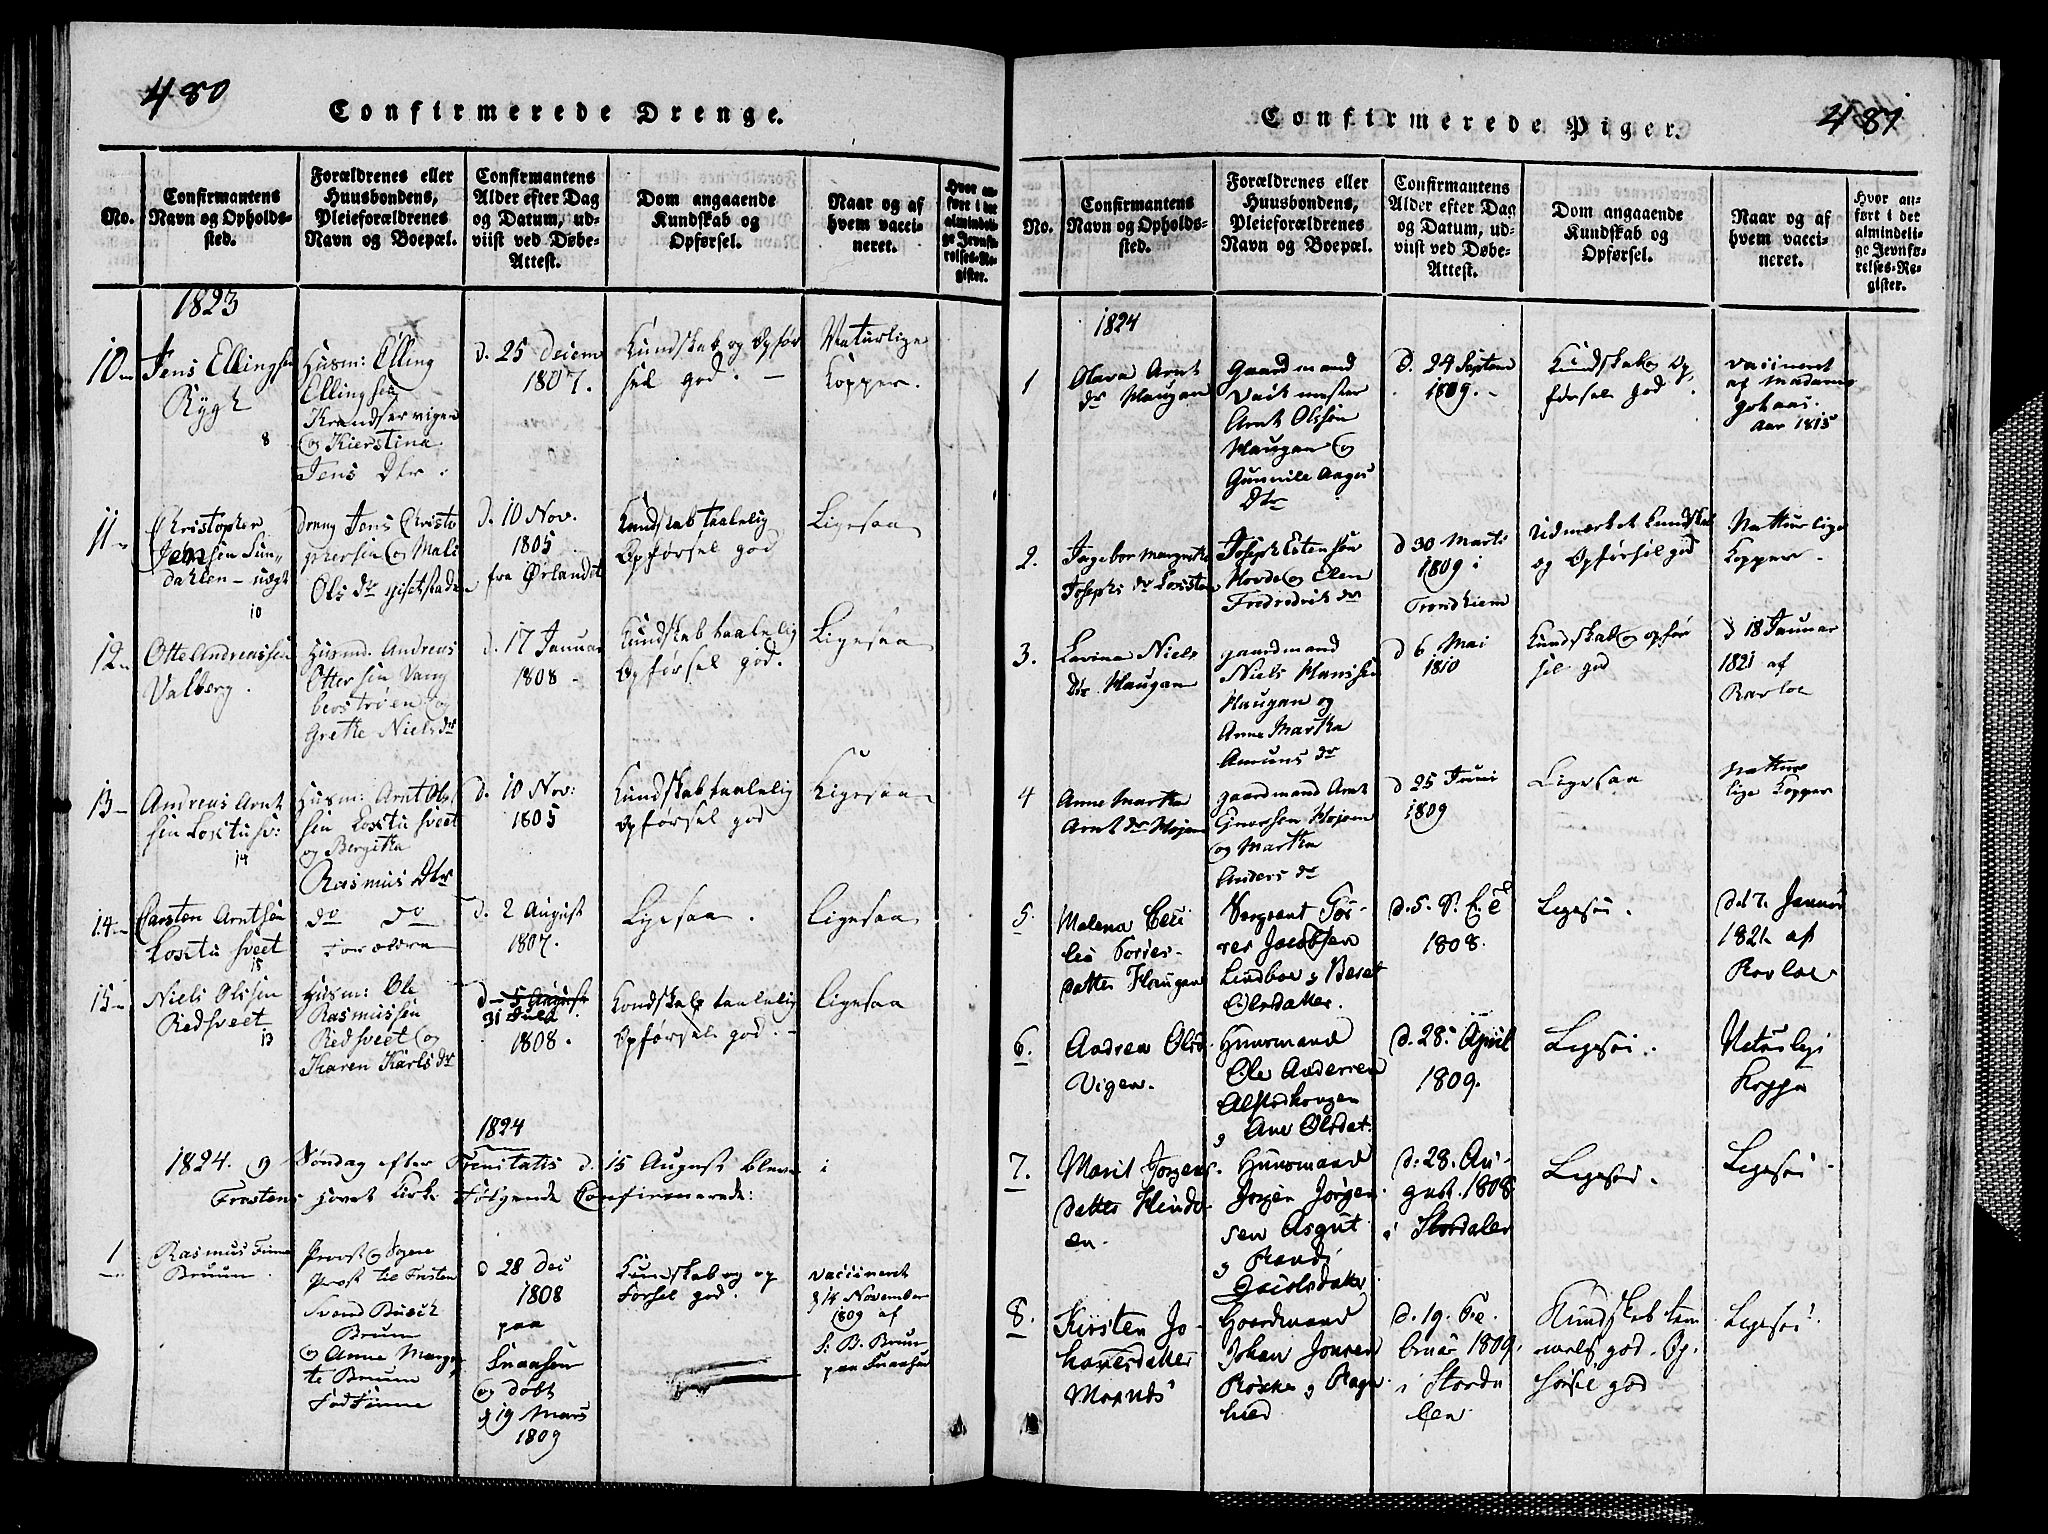 480
Confirmerede Drenge.
No.
Confirmantens
Navn og Opholds-
sted.
Forældrenes eller
Huusbondens,
Pleieforældrenes
Navn og Boepæl.
Confirmantens
Alder efter Dag
og Datum, ud-
viist ved Døbe-
Attest.
Dom angaaende
Kundskab og
Opførsel.
Naar og af
hvem vacci-
neret.
Hvor an-
ført i det
almindeli-
ge Jevnfø-
relses-Re-
gister.
1823
10
Jens Ellingsen
Rygh
8
Husm: Elling
Ellingsen
og Kierstina
Jens Dtr.
d. 25 Decem
1807.
Kundskab og Opfør
sel god.
Naturlige
Kopper.
11
Christopher
Jensen Sun
dahlen
10
Jens Christo
phersen og Mali
Ols dr
d. 10 Nov.
1805
fra Ørlandet
Kundskab taalelig
Opførsel god
Ligesaa
12
Otte Andreassen
Valberg.
Husmd. Andreas
Ottersen Vang
berstrøen og
Grethe Niels dr
d. 17 Januar
1808
Kundskab taalelig
Opførsel god.
Ligesaa
13
Andreas Arnt
sen
14
Husm: Arnt Ols
sen
og Bergitha
Rasmus Dtr
d. 10 Nov:
1805
Kundskab taalelig
Opførsel god
Ligesaa
14
Carsten Arntsen
15
do do
Forældre
d. 2 August
1807.
Ligesaa.
Ligesaa
15
Niels Olsen
Redsveet
13
Husm: Ole
Rasmussen
Redsveet og
Karen Karls dr
d. 5 August
31 Julii
1808.
Kundskab taalelig
Opførsel god.
Ligesaa
1824
1824. 9 Søndag efter Trinitatis d. 15 August bleve i
Frostens hovet Kirke Følgende Confirmerede:
1
Rasmus Finne
Bruun.
Provst og Sogne
Præst til Frosten
Svend Busch
Bruun
og Anne Margre
te Bruun
Fød Finne
d 28 Dec
1808
paa
Snaasen
og døbt
d 19 Mars
1809
Kundskab og op
førsel god.
vaccineret
d 14 November
1809 af
S. B. Bruun
paa Snaasen
481
Confirmerede Piger.
No.
Confirmantens
Navn og Opholds-
sted.
Forældrenes eller
Huusbondens,
Pleieforældrenes
Navn og Boepæl.
Confirmantens
Alder efter Dag
og Datum, ud-
viist ved Døbe-
Attest.
Dom angaaende
Kundskab og
Opførsel.
Naar og af
hvem vacci-
neret.
Hvor an-
ført i det
almindeli-
ge Jevnfø-
relses-Re-
gister.
1824
1
Olava Arnt
dr Haugan
Gaardmand
Arnt Olsen
Haugan og
Gunnild Aages
Dtr
d. 24 Septem
1809.
Kundskab Op
førsel god.
vaccineret
af Madame
aar 1815
2.
Ingebor Margrethe
Josephs dr
Joseph Estensen
Hovde og Elen
Fredrik dr
d 30 Marts
1809 i
Trondhiem
Udmærket Kundskab
og Opførsel god
Natturlige
Kopper.
3.
Lavina Niels
Dtr Haugan
gaardmand
Niels Hansen
Haugan og
Anne Martha
Amuns dr
d 6 Mai
1810
Kundskab og opfør
sel god
d 18 Januar
1821 af
4
Anne Martha
Arnt dr Hojem
gaardmand Arnt
Hojem
og Martha
Anders dr
d 25 Juni
1809
Ligesaa
Nattur
lige Kopper
5.
Malena Ceci
lia Torres-
datter Haugan
Sergeant Tor-
res Jacobsen
Lindboe og Beret
Olsdatter.
1808.
Ligesaa.
d. 17. Januar
1821 af
6.
Andrea Olsd.
Vigen.
Huusmand
Ole Andersen
og Ane Olsdat.
d. 28. April
1809.
Ligesaa.
Naturlige
Kopper
7.
Marit Jørgens
datter
Huusmand
Jørgen Jørgen
sen Asgut
og Randi
d: 28. Au-
gust. 1808
i Stordalen
Ligesaa.
Ligesaa
8.
Kirsten Jo-
hansdatter
Gaardmand
Johan Jonsen
og Ragn
hild
d. 19. Fe
bruar 1809.
i Storda
len
Kundskab tem
melig god. Op
førsel god
Ligesaa.